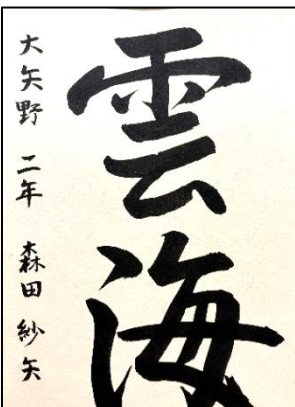 雲海
大矢野 二年 森田 紗矢